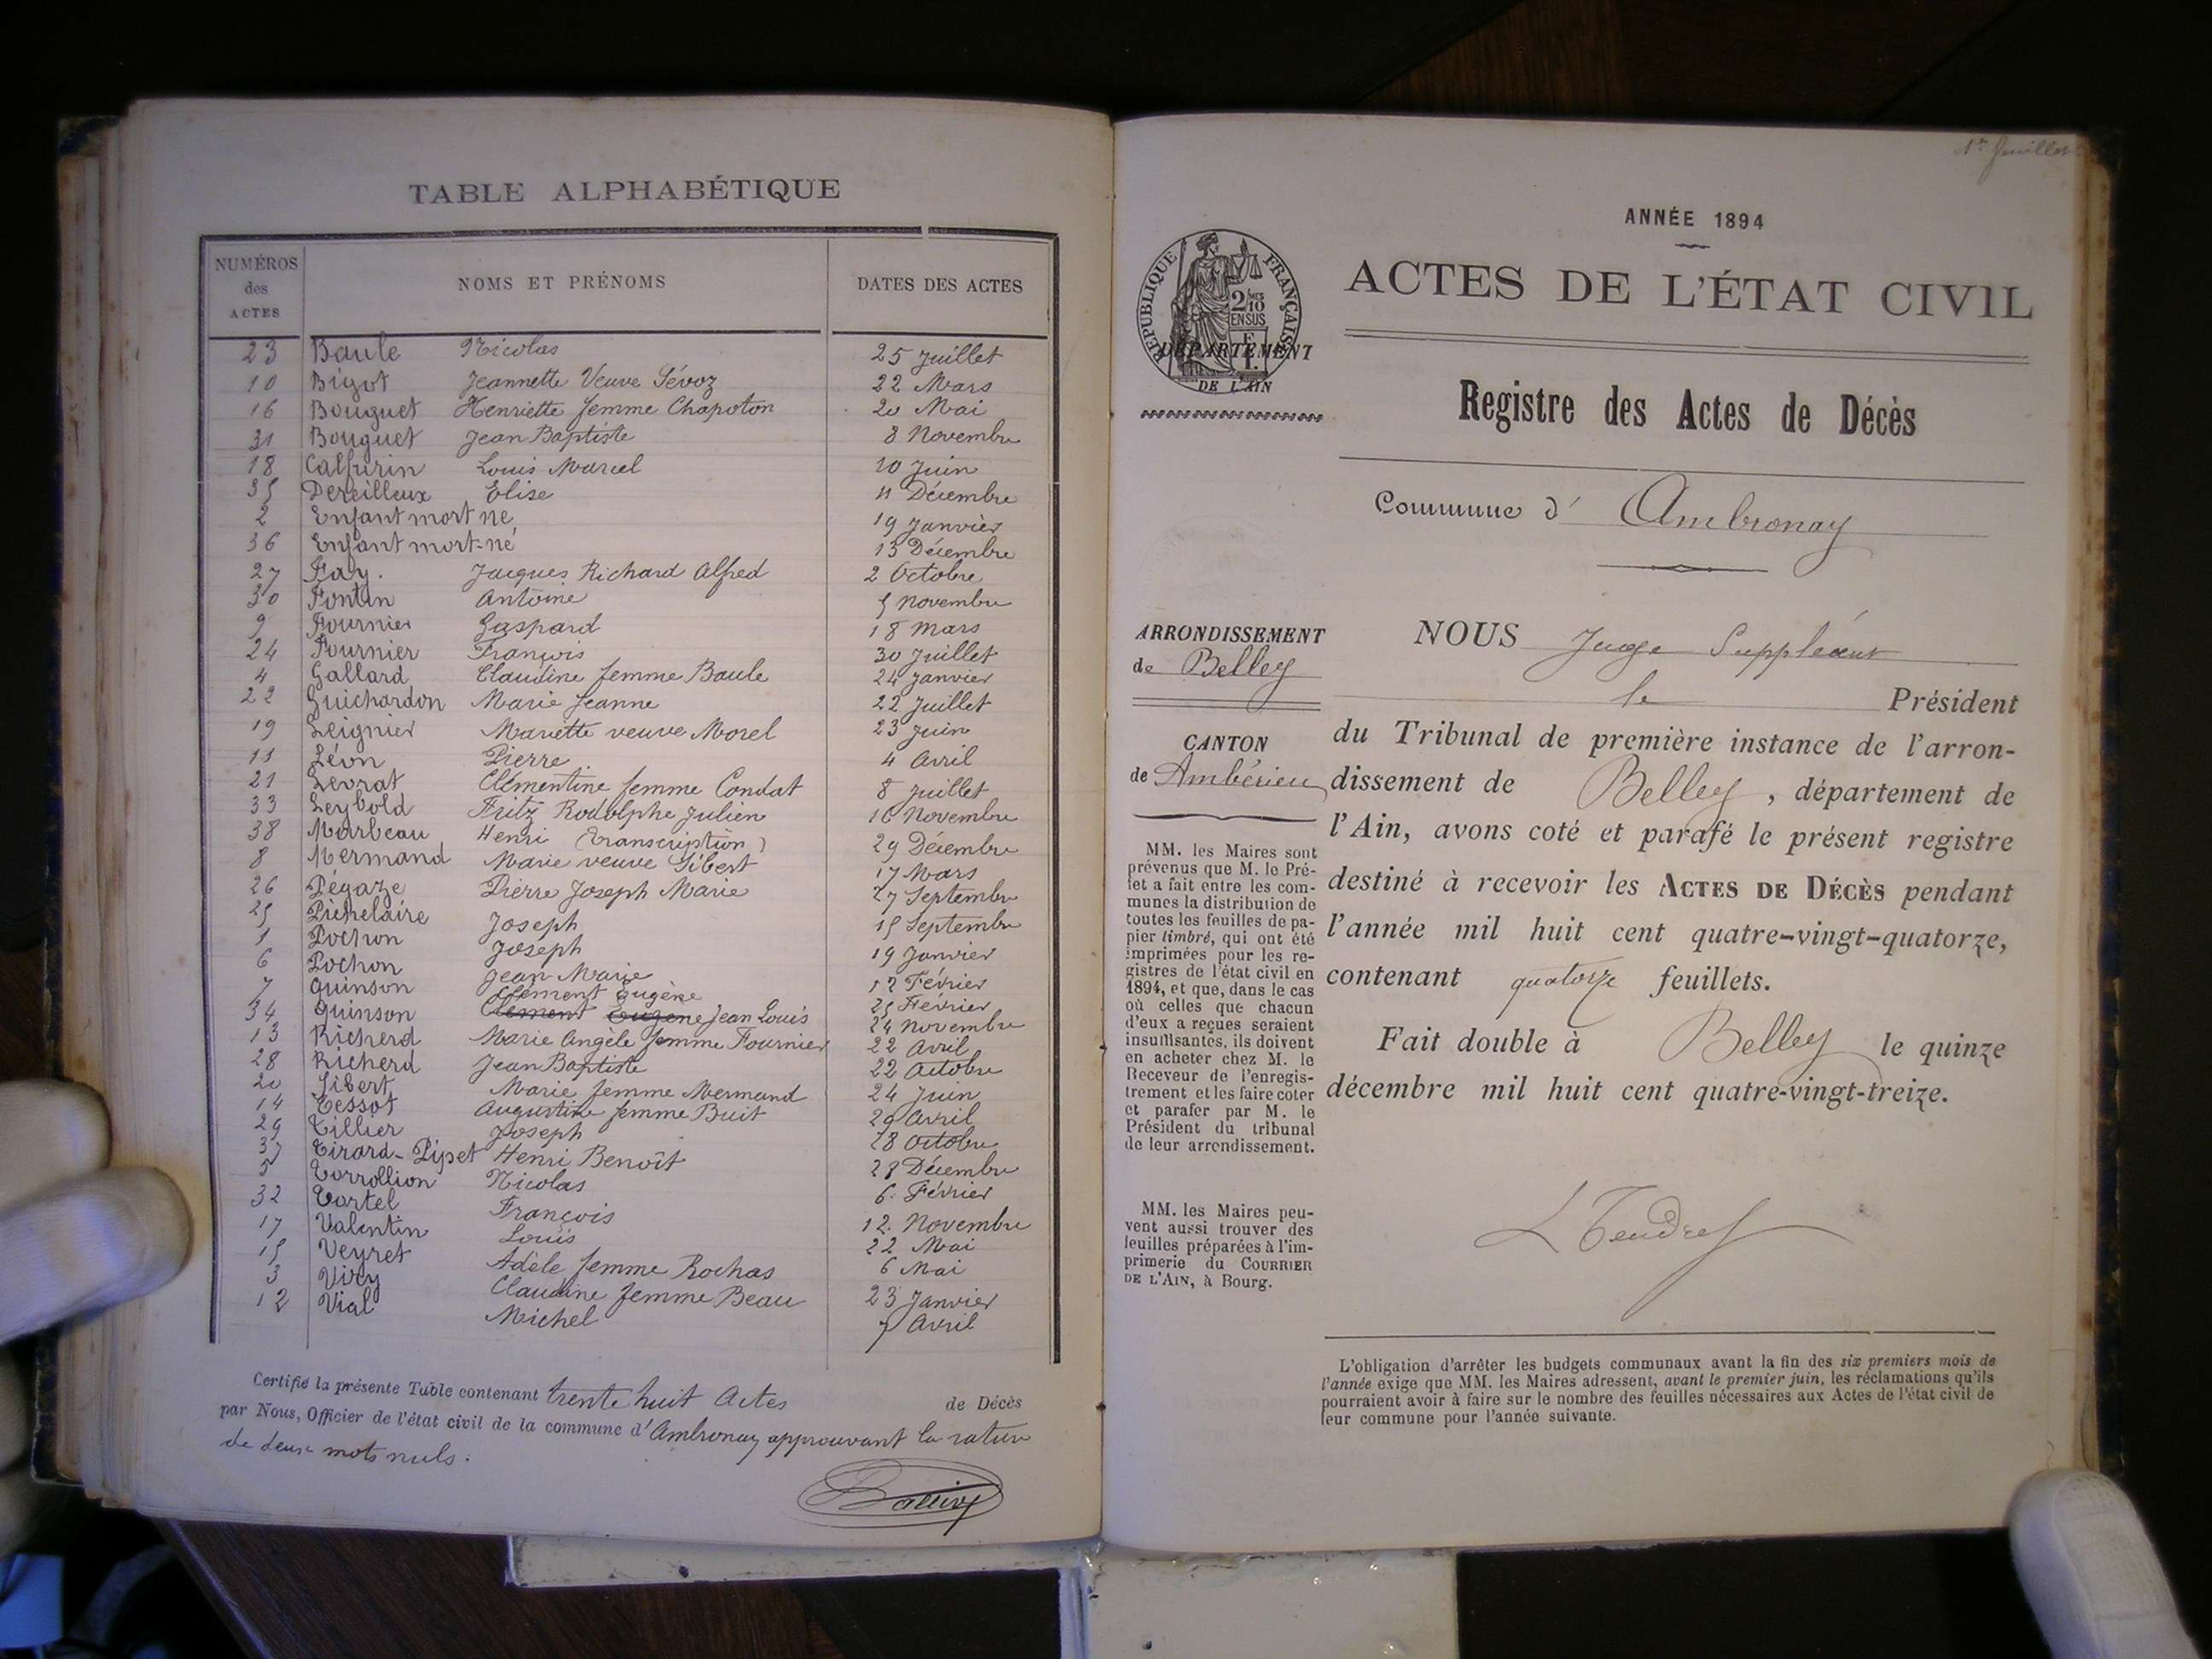 TABLE ALPHABÉTIQUE
NUMÉROS des ACTES NOMS ET PRÉNOMS DATES DES ACTES
23 Baule Nicolas 25 Juillet
10 Bigot Jeannette Veuve Sévoz 22 Mars
16 Bouguet Henriette femme Chapoton 20 Mai
31 Bouguet Jean Baptiste 8 Novembre
18 Calfurin Louis Marcel 10 Juin
35 Dereilleux Elise 11 Décembre
2 Enfant mort né 19 Janvier
36 Enfant mort-né 13 Décembre
27 Fay. Jacques Richard Alfred 2 Octobre
30 Fontin Antoine 5 Novembre
9 Fournier Gaspard 18 Mars
24 Fournier François 30 Juillet
4 Gallard Claudine femme Baule 24 Janvier
22 Guichardon Marie Jeanne 22 Juillet
19 Leignier Mariette veuve Morel 23 Juin
11 Léon Pierre 4 Avril
21 Levrat Clémentine femme Condat 8 Juillet
33 Leybold Fritz Rodolphe Julien 16 Novembre
38 Marbeau Henri (transcription) 29 Décembre
8 Mermand Marie veuve Sibert 17 Mars
26 Pégaze Pierre Joseph Marie 27 Septembre
25 Pichelaire Joseph 15 Septembre
1 Pochon Joseph 19 Janvier
6 Pochon Jean Marie 12 Février
7 Quinson Clément Eugène 25 Février
34 Quinson Clément Eugène Jean Louis 24 Novembre
13 Richerd Marie Angèle femme Fournier 22 Avril
28 Richerd Jean Baptiste 22 Octobre
20 Sibert Marie femme Mermand 24 Juin
14 Tessot Augustine femme Buit 29 Avril
29 Tillier Joseph 28 Octobre
37 Tirard-Pipet Henri Benoît 28 Décembre
5 Torrollion Nicolas 6. Février
32 Tortel François 12. Novembre
17 Valentin Louis 22 Mai
15 Veyret Adèle femme Rochas 6 Mai
3 Viry Claudine femme Beau 23 Janvier
12 Vial Michel 7 Avril
Certifié la présente Table contenant trente huit Actes de Décès
par Nous, Officier de l'état civil de la commune d'Ambronay approuvant la rature
de deux mots nuls.
1er feuillet
ANNÉE 1894
ACTES DE L'ÉTAT CIVIL
RÉPUBLIQUE FRANÇAISE
2/10 MES
EN SUS
DÉPARTEMENT
DE L'AIN
Registre des Actes de Décès
Commune d' Ambronay
ARRONDISSEMENT
de Belley
CANTON
de Ambérieu
MM. les Maires sont
prévenus que M. le Pré-
fet a fait entre les com-
munes la distribution de
toutes les feuilles de pa-
pier timbré, qui ont été
imprimées pour les re-
gistres de l'état civil en
1894, et que, dans le cas
où celles que chacun
d'eux a reçues seraient
insuffisantes, ils doivent
en acheter chez M. le
Receveur de l'enregis-
trement et les faire coter
et parafer par M. le
Président du tribunal
de leur arrondissement.
MM. les Maires peu-
vent aussi trouver des
feuilles préparées à l'im-
primerie du COURRIER
DE L'AIN, à Bourg.
NOUS Juge Suppléant
le Président
du Tribunal de première instance de l'arron-
dissement de Belley, département de
l'Ain, avons coté et parafé le présent registre
destiné à recevoir les ACTES DE DÉCÈS pendant
l'année mil huit cent quatre-vingt-quatorze,
contenant quatorze feuillets.
Fait double à Belley le quinze
décembre mil huit cent quatre-vingt-treize.
L'obligation d'arrêter les budgets communaux avant la fin des six premiers mois de
l'année exige que MM. les Maires adressent, avant le premier juin, les réclamations qu'ils
pourraient avoir à faire sur le nombre des feuilles nécessaires aux Actes de l'état civil de
leur commune pour l'année suivante.